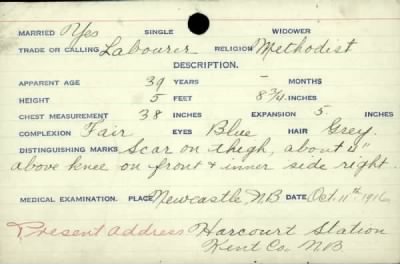 MARRIED Yes SINGLE WIDOWER
TRADE OR CALLING Labourer RELIGION Methodist
DESCRIPTION.
APPARENT AGE 39 YEARS - MONTHS
HEIGHT 5 FEET 8 3/4 INCHES
CHEST MEASUREMENT 38 INCHES EXPANSION 5 INCHES
COMPLEXION Fair EYES Blue HAIR Grey.
DISTINGUISHING MARKS Scar on thigh, about 4"
above knee on front & inner side right.
MEDICAL EXAMINATION. PLACE Newcastle, NB DATE Oct. 11th 1916
Present address Harcourt Station
Kent Co. NB